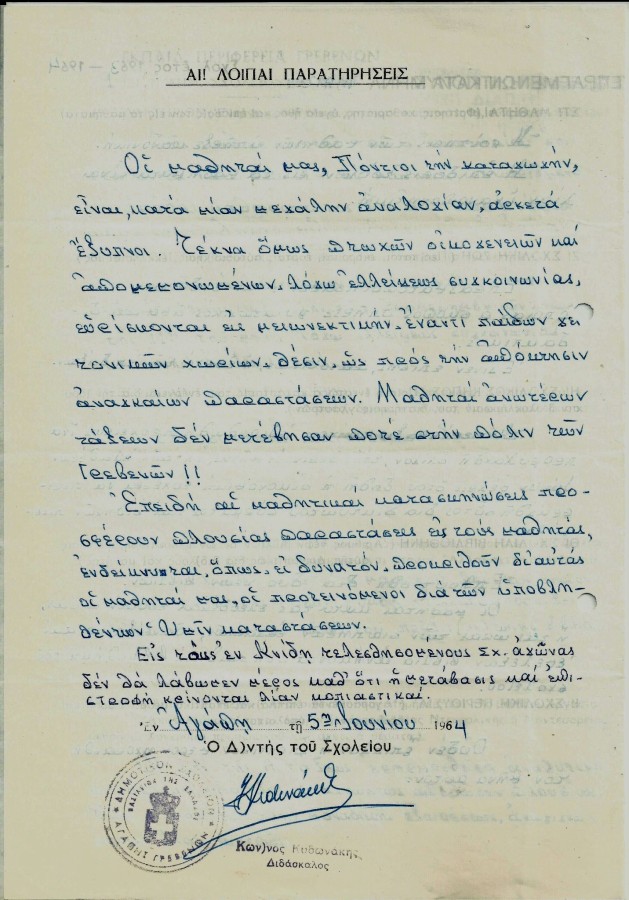 ΑΙ! ΛΟΙΠΑΙ ΠΑΡΑΤΗΡΗΣΕΙΣ
Οἱ μαθηταί μας, Πόντιοι τὴν καταγωγήν,
εἶναι, κατά μίαν μεγάλην ἀναλογίαν, ἀρκετά
ἔξυπνοι. Τέκνα ὅμως πτωχῶν οἰκογενειῶν καί
ἀπομεμονωμένων, λόγω ἐλλείψεως συγκοινωνίας,
εὑρίσκονται εἰς μειωνεκτικήν, ἔναντι παίδων γει
τονικῶν χωρίων, θέσιν, ὡς πρός τήν ἀπόκτησιν
ἀναγκαίων παραστάσεων. Μαθηταί ἀνωτέρων
τάξεων δέν μετέβησαν ποτέ στήν πόλιν τῶν
Γρεβενῶν!!
Ἐπειδή αἱ μαθητικαί κατασκηνώσεις προ-
σφέρουν πλουσίας παραστάσεις εἰς τούς μαθητάς,
ἐνδείκνυται, ὅπως, εἰ δυνατόν, προκριθοῦν δι' αὐτάς
οἱ μαθηταί μας, οἱ προτεινόμενοι διά τῶν ὑποβλη-
θέντων Ὑμῖν καταστάσεων.
Εἰς τούς ἐν Κνίδη τελεσθησομένους σχ. ἀγῶνας
δέν θά λάβωμεν μέρος καθ' ὅτι ἡ μετάβασις καί ἐπι-
στροφή κρίνονται λίαν κοπιαστικαί.
Ἐν Ἀγάπῃ τῇ 5ῃ Ἰουνίου 1964
Ὁ Δ)ντής τοῦ Σχολείου
ΔΗΜΟΤΙΚΟΝ ΣΧΟΛΕΙΟΝ
ΒΑΣΙΛΕΙΟΝ ΤΗΣ ΕΛΛΑΔΟΣ
ΑΓΑΠΗΣ ΓΡΕΒΕΝΩΝ
Κων)νος Κυδωνάκης,
Διδάσκαλος